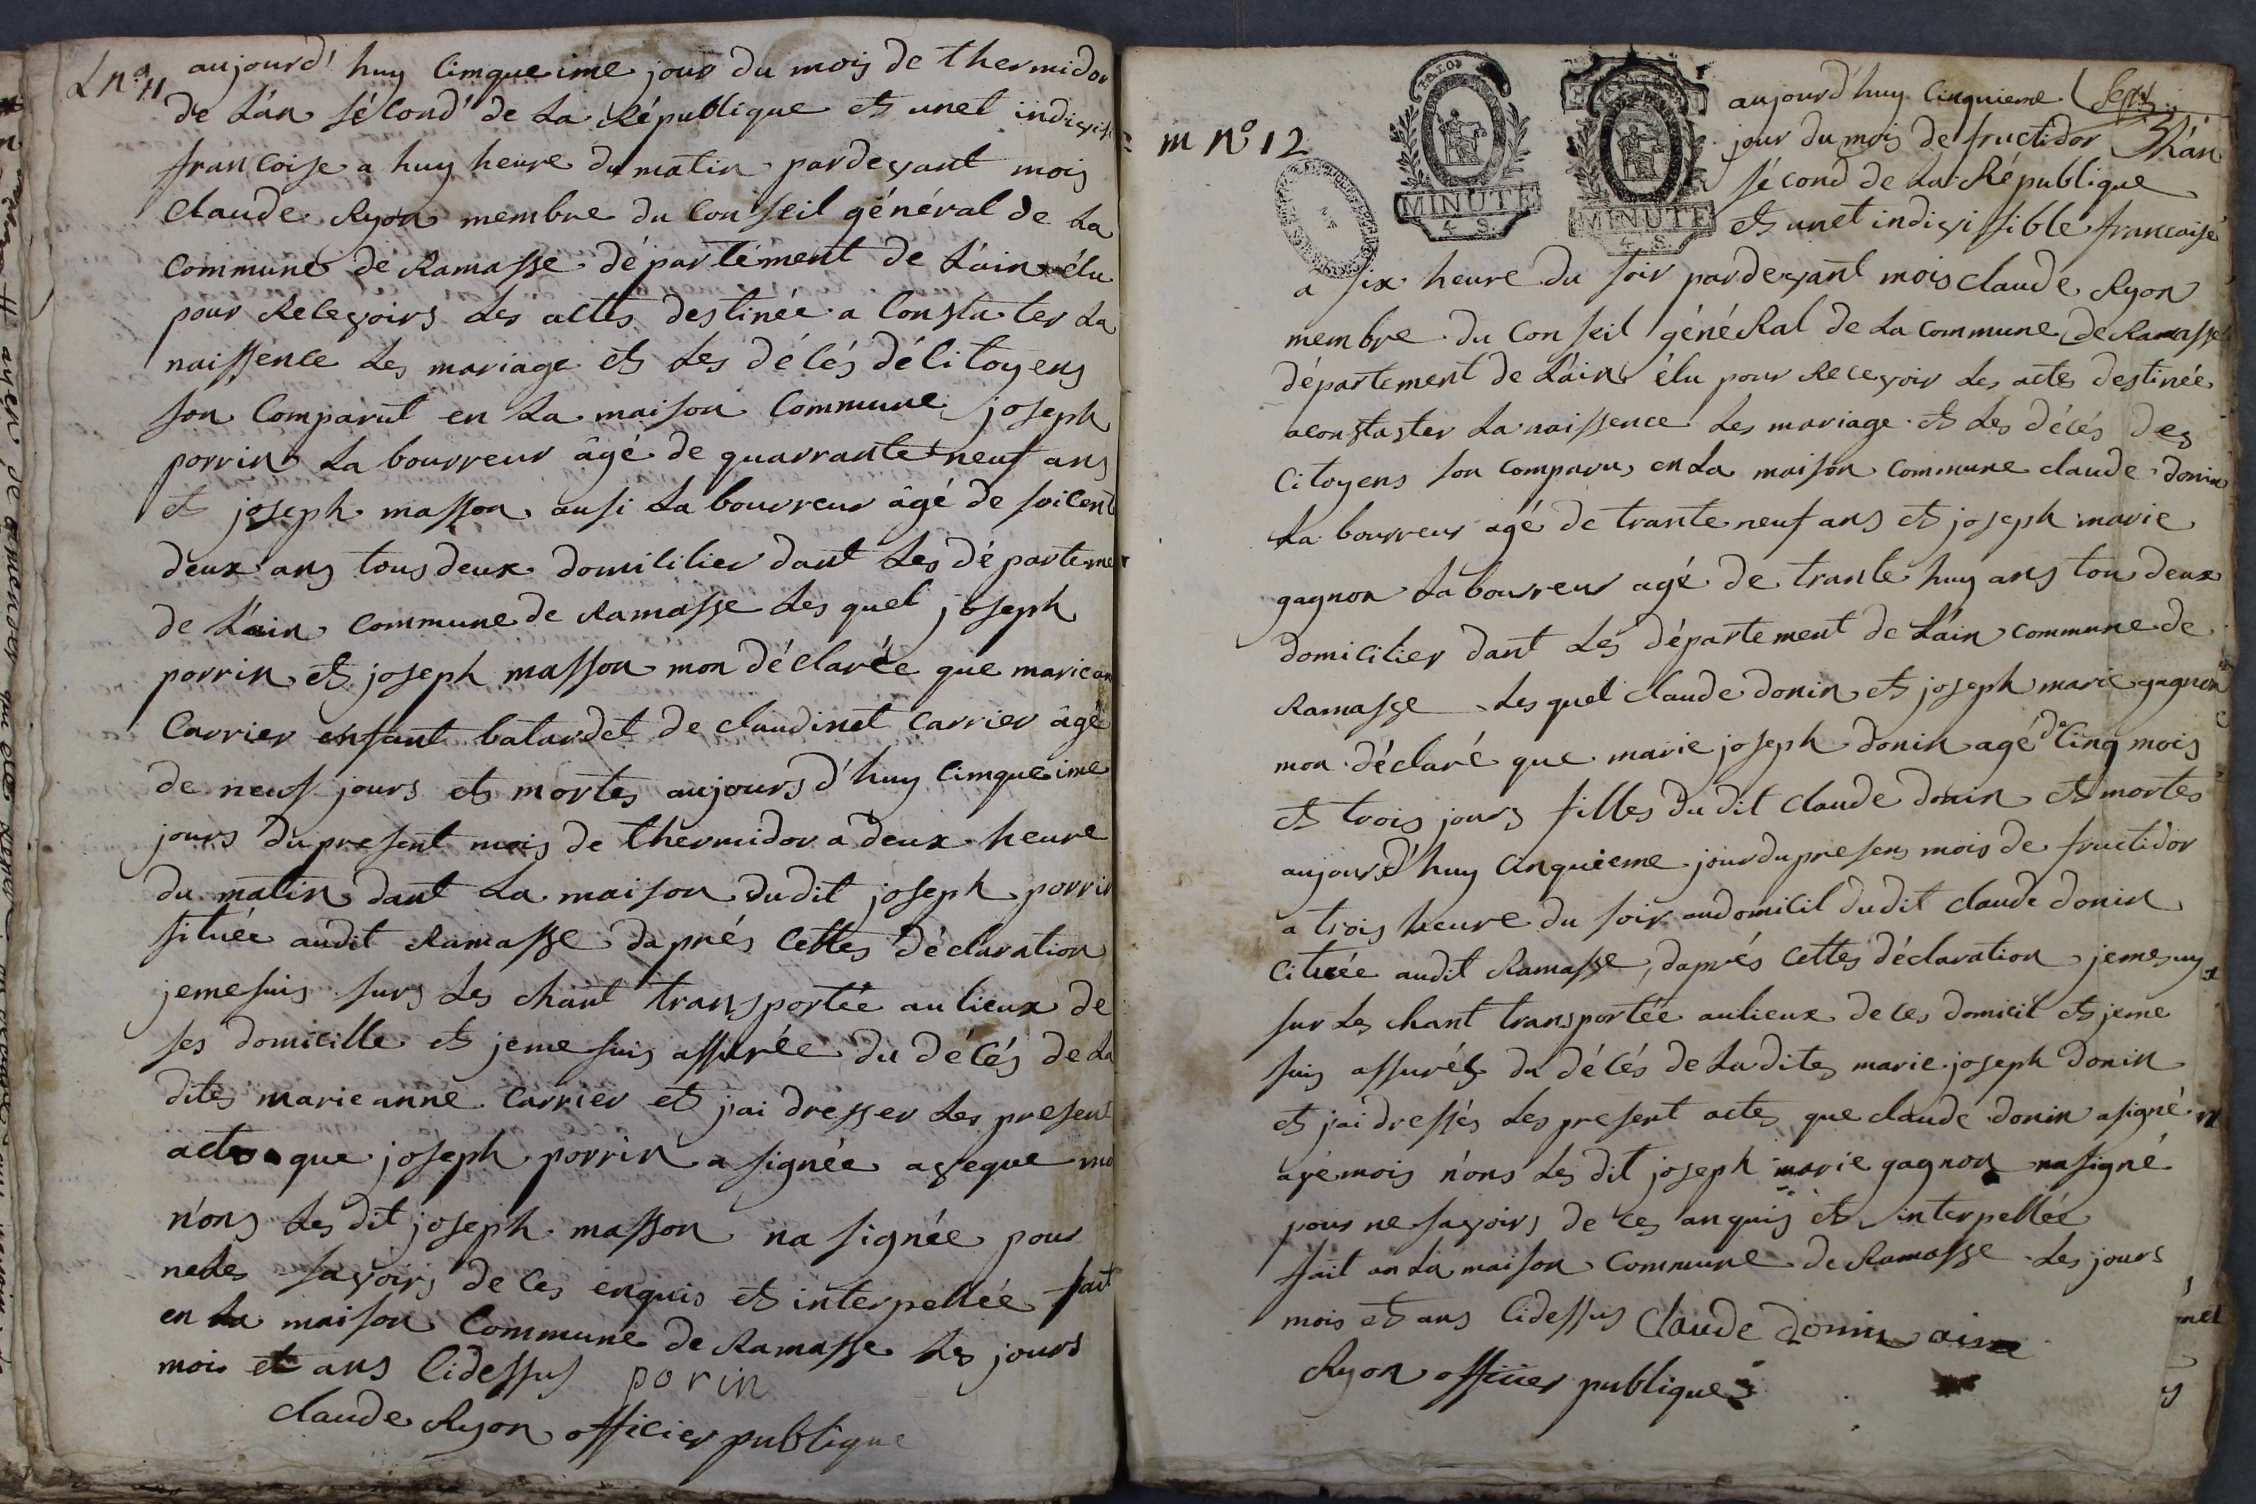 L n.º 11 aujourd'huy Cimqueime jour du mois de thermidor
de L'an sécond de La République et unet indivisi
francoise a huy heure du matin pardevant mois
Claude Ryon membre du Conseil général de La
Commune de Ramasse département de L'ain élu
pour Recevoirs Les actes destinée a Constater La
naissence Les mariage et Les décés dé Citoyens
son Comparut en La maison Commune joseph
porrin La bourreur âgé de quarrante neuf ans
et joseph masson ausi La bourreur âgé de soicent
deux ans tous deux domicilier dant Les départeme
de L'ain commune de Ramasse Les quel joseph
porrin et joseph masson mon déclarée que marie an
Carrier enfant batardet de claudinet Carrier âgé
de neuf jours et mortes aujours d'huy Cimqueime
jours du present mois de thermidor a deux heure
du matin dant La maison dudit joseph porrin
située audit Ramasse daprés Cettes déclaration
jemesuis surs Les chant transportée au lieux de
ses domicille et jeme suis assurée du décés de La
dites marie anne Carrier et j'ai dresser Les present
actes que joseph porrin a signée aveque mo
n'ons Les dit joseph masson na signée pour
ne Les savoirs de Ces enquis et interpellée fait
en La maison Commune de Ramasse Les jours
mois et ans Cidessus porin
Claude Ryon officier publique
m nº 12
MINUTE
4 S.
MINUTE
4 S.
aujourd'huy Cinquieme
jour du mois de fructidor L'an
sécond de La République
et unet indivissible francaise
a six heure du soir pardevant mois Claude Ryon
membre du Conseil général de La Commune de Ramasse
département de L'ain élu pour Recevoir Les actes destinée
aconstaster La naissence Les mariage et Les décés des
Citoyens son comparu en La maison commune claude donin
La bourreur agé de trante neuf ans et joseph marie
gagnon La bourreur agé de trante huy ans tou deux
domicilier dant Les département de L'ain commune de
Ramasse Les quel claude donin et joseph marie gagnon
mon déclaré que marie joseph donin agé de Cinq mois
et trois jours filles dudit Claude donin et mortes
aujour d'huy Cinquieme jour du presens mois de fructidor
a trois heure du soir audomicil dudit claude donin
Cituée audit Ramasse, daprés Cettes déclaration jemesuy
sur Les chant transportée aulieux de Ces domicil et jeme
suis assurés du décés de La dites marie joseph donin
et j'ai dressés Les present actes que claude donin asigné
avé mois n'ons Les dit joseph marie gagnon na signé
pour ne savoirs de Ces anquis et interpellée
fait an La maison Commune de Ramasse Les jours
mois et ans Cidessus Claude donin
Ryon officier publique